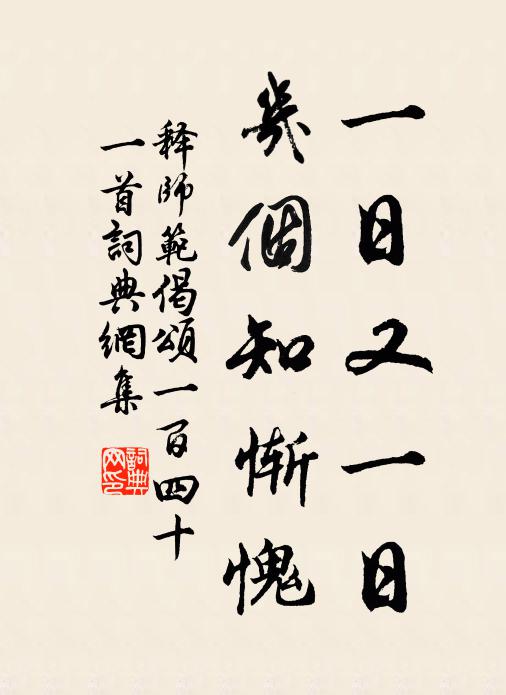 一日又一日
幾個知慚愧
释師範偈頌一百四十
一首詞典網集
詞典
网印